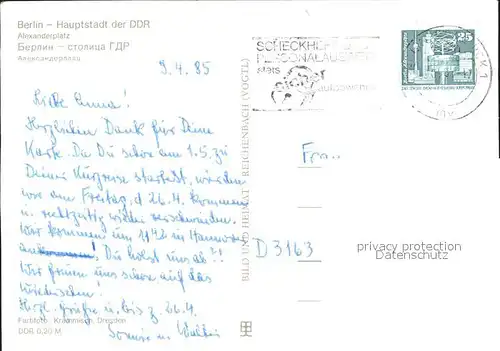 Berlin – Hauptstadt der DDR
Alexanderplatz
Берлин – столица ГДР
Александерплац
9.4.85
SCHECKHEFT
PERSONALAUSWEIS
stets
sicher
aufbewahren
25
BERLIN
Liebe Anna!
Herzlichen Dank für Deine
Karte. Da Du schon am 1.5. zu
Deiner Kurreise startest, würden
wir am Freitag, d 26.4. kommen
u. rechtzeitig wieder verschwinden.
Wir kommen um 1142 in Hannover
an! Du holst uns ab?!
Wir freuen uns schon auf das
Wiedersehen!
Herzl. Grüße u. bis z. 26.4.
u.
Frau
D 3163
privacy protection
Datenschutz
BILD UND HEIMAT REICHENBACH (VOGTL)
Farbfoto: Krammisch, Dresden
DDR 0,20 M